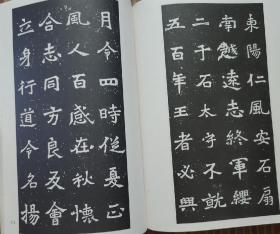 東陽仁風安石扇
南越遠志終軍纓
二千石太守不就
五百年王者必興
月令四時從夏正
風人百感在秋懷
合志同方良友會
立身行道令名揚